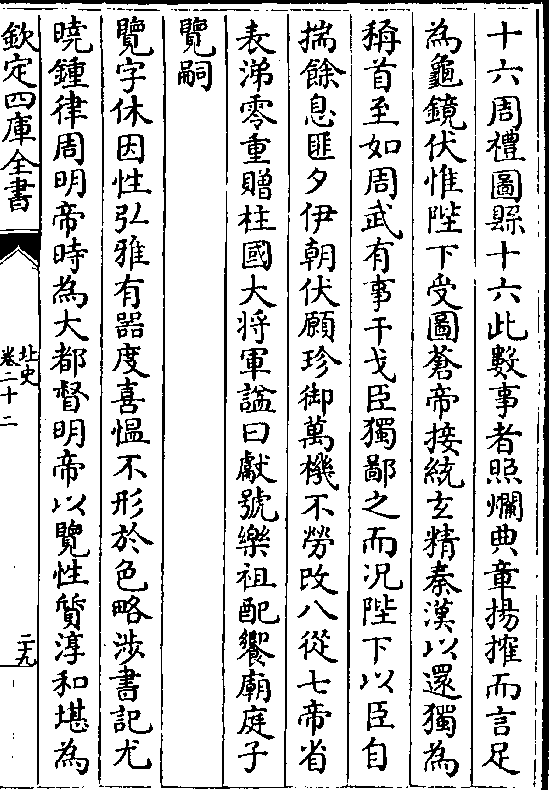 十六周禮圖縣十六此數事者照爛典章揚搉而言足
為龜鏡伏惟陛下受圖蒼帝接統玄精秦漢以還獨為
稱首至如周武有事干戈臣獨鄙之而况陛下以臣自
揣餘息匪夕伊朝伏願珍御萬機不勞改八從七帝省
表涕零重贈柱國大将軍諡曰獻號樂祖配饗廟庭子
覽嗣
覽字休因性弘雅有器度喜愠不形於色略渉書記尤
曉鍾律周明帝時為大都督明帝以覽性質淳和堪為
欽定四庫全書
北史
卷二十二
二十九